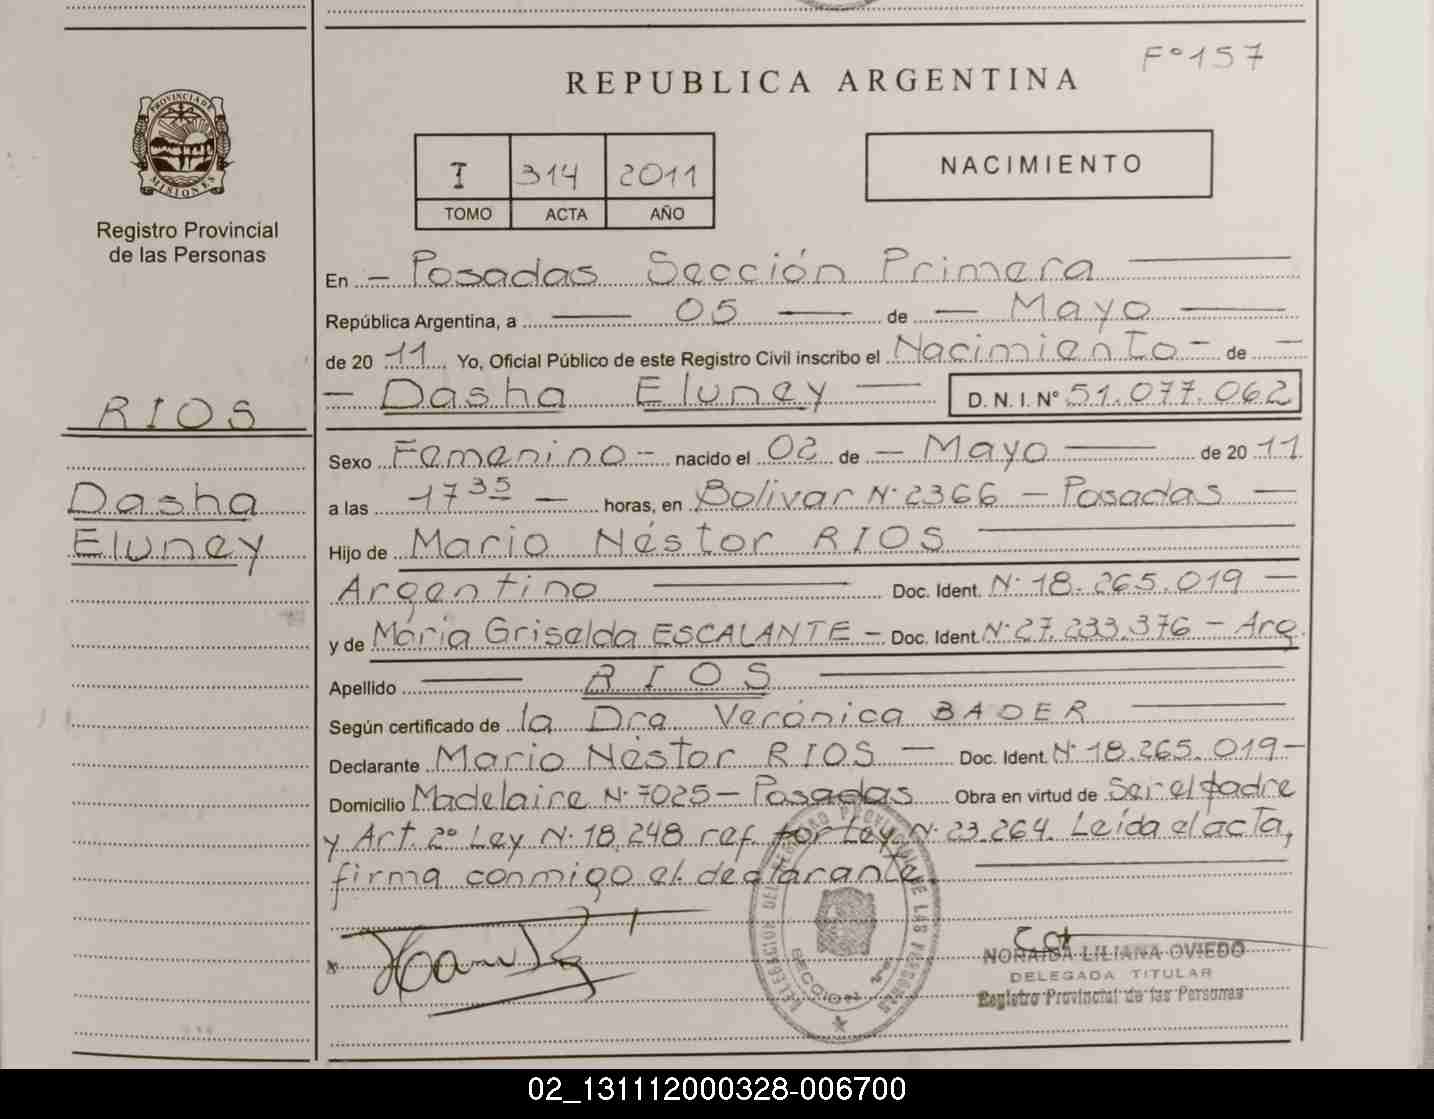 Fº 157
REPUBLICA ARGENTINA
PROVINCIA DE
MISIONES
Registro Provincial
de las Personas
I 314 2011
TOMO ACTA AÑO
NACIMIENTO
En - Posadas Sección Primera
República Argentina, a 05 de - Mayo
de 20 11 Yo, Oficial Público de este Registro Civil inscribo el Nacimiento - de -
- Dasha Eluney D. N. I. Nº 51.077.062
RIOS
Dasha
Eluney
Sexo Femenino - nacido el 02 de - Mayo de 20 11
a las 17 35 - horas, en Bolivar Nº 2366 - Posadas -
Hijo de Mario Néstor RIOS
Argentino Doc. Ident. Nº 18.265.019 -
y de María Griselda ESCALANTE - Doc. Ident. Nº 27.233.376 - Arg.
Apellido RIOS
Según certificado de la Dra Verónica BADER
Declarante Mario Néstor RIOS - Doc. Ident. Nº 18.265.019 -
Domicilio Madelaire Nº 7025 - Posadas Obra en virtud de Ser el padre
y Art. 2º Ley Nº 18.248 ref. por Ley Nº 23.264. Leída el acta,
firma conmigo el declarante.
DELEGACION DEL REGISTRO PROVINCIAL DE LAS PERSONAS
SECCION 1ª
NORAIDA LILIANA OVIEDO
DELEGADA TITULAR
Registro Provincial de las Personas
02_131112000328-006700